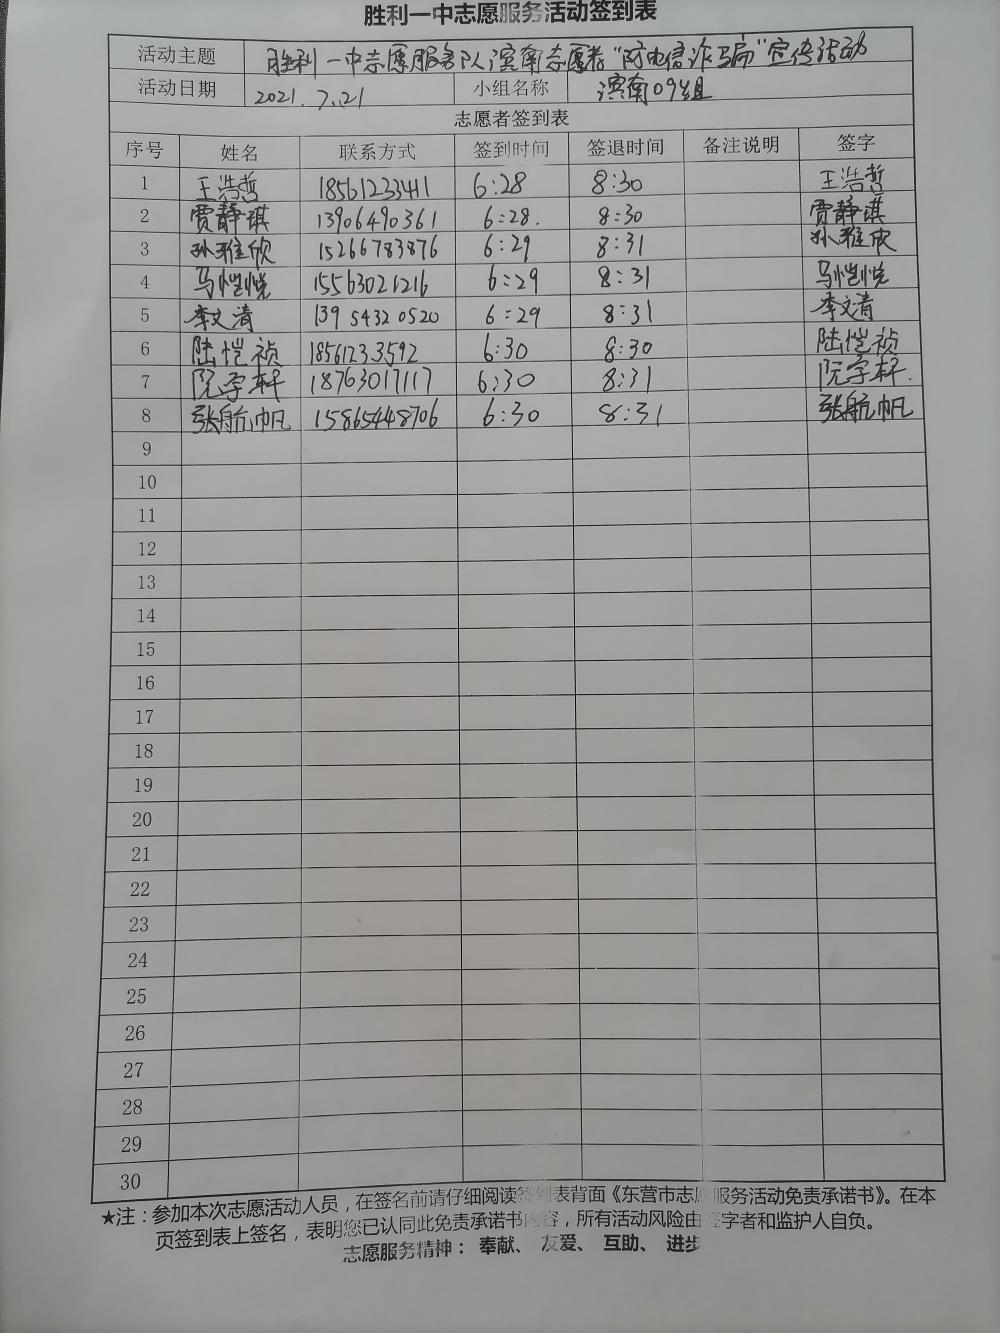 胜利一中志愿服务活动签到表
活动主题 胜利一中志愿服务队滨南志愿者“防电信诈骗局”宣传活动
活动日期 2021.7.21 小组名称 滨南09组
志愿者签到表
序号 姓名 联系方式 签到时间 签退时间 备注说明 签字
1 王浩哲 18561233411 6:28 8:30 王浩哲
2 贾静琪 13906490361 6:28. 8:30 贾静琪
3 孙雅欣 15266783876 6:29 8:31 孙雅欣
4 马恺悦 15563021216 6:29 8:31 马恺悦
5 李文清 13954320520 6:29 8:31 李文清
6 陆恺祯 18561233592 6:30 8:30 陆恺祯
7 阮字轩 18763017117 6:30 8:31 阮字轩.
8 张航帆 15865448706 6:30 8:31 张航帆
9
10
11
12
13
14
15
16
17
18
19
20
21
22
23
24
25
26
27
28
29
30
★注：参加本次志愿活动人员，在签名前请仔细阅读签到表背面《东营市志愿服务活动免责承诺书》。在本
页签到表上签名，表明您已认同此免责承诺书内容，所有活动风险由签字者和监护人自负。
志愿服务精神： 奉献、 友爱、 互助、 进步